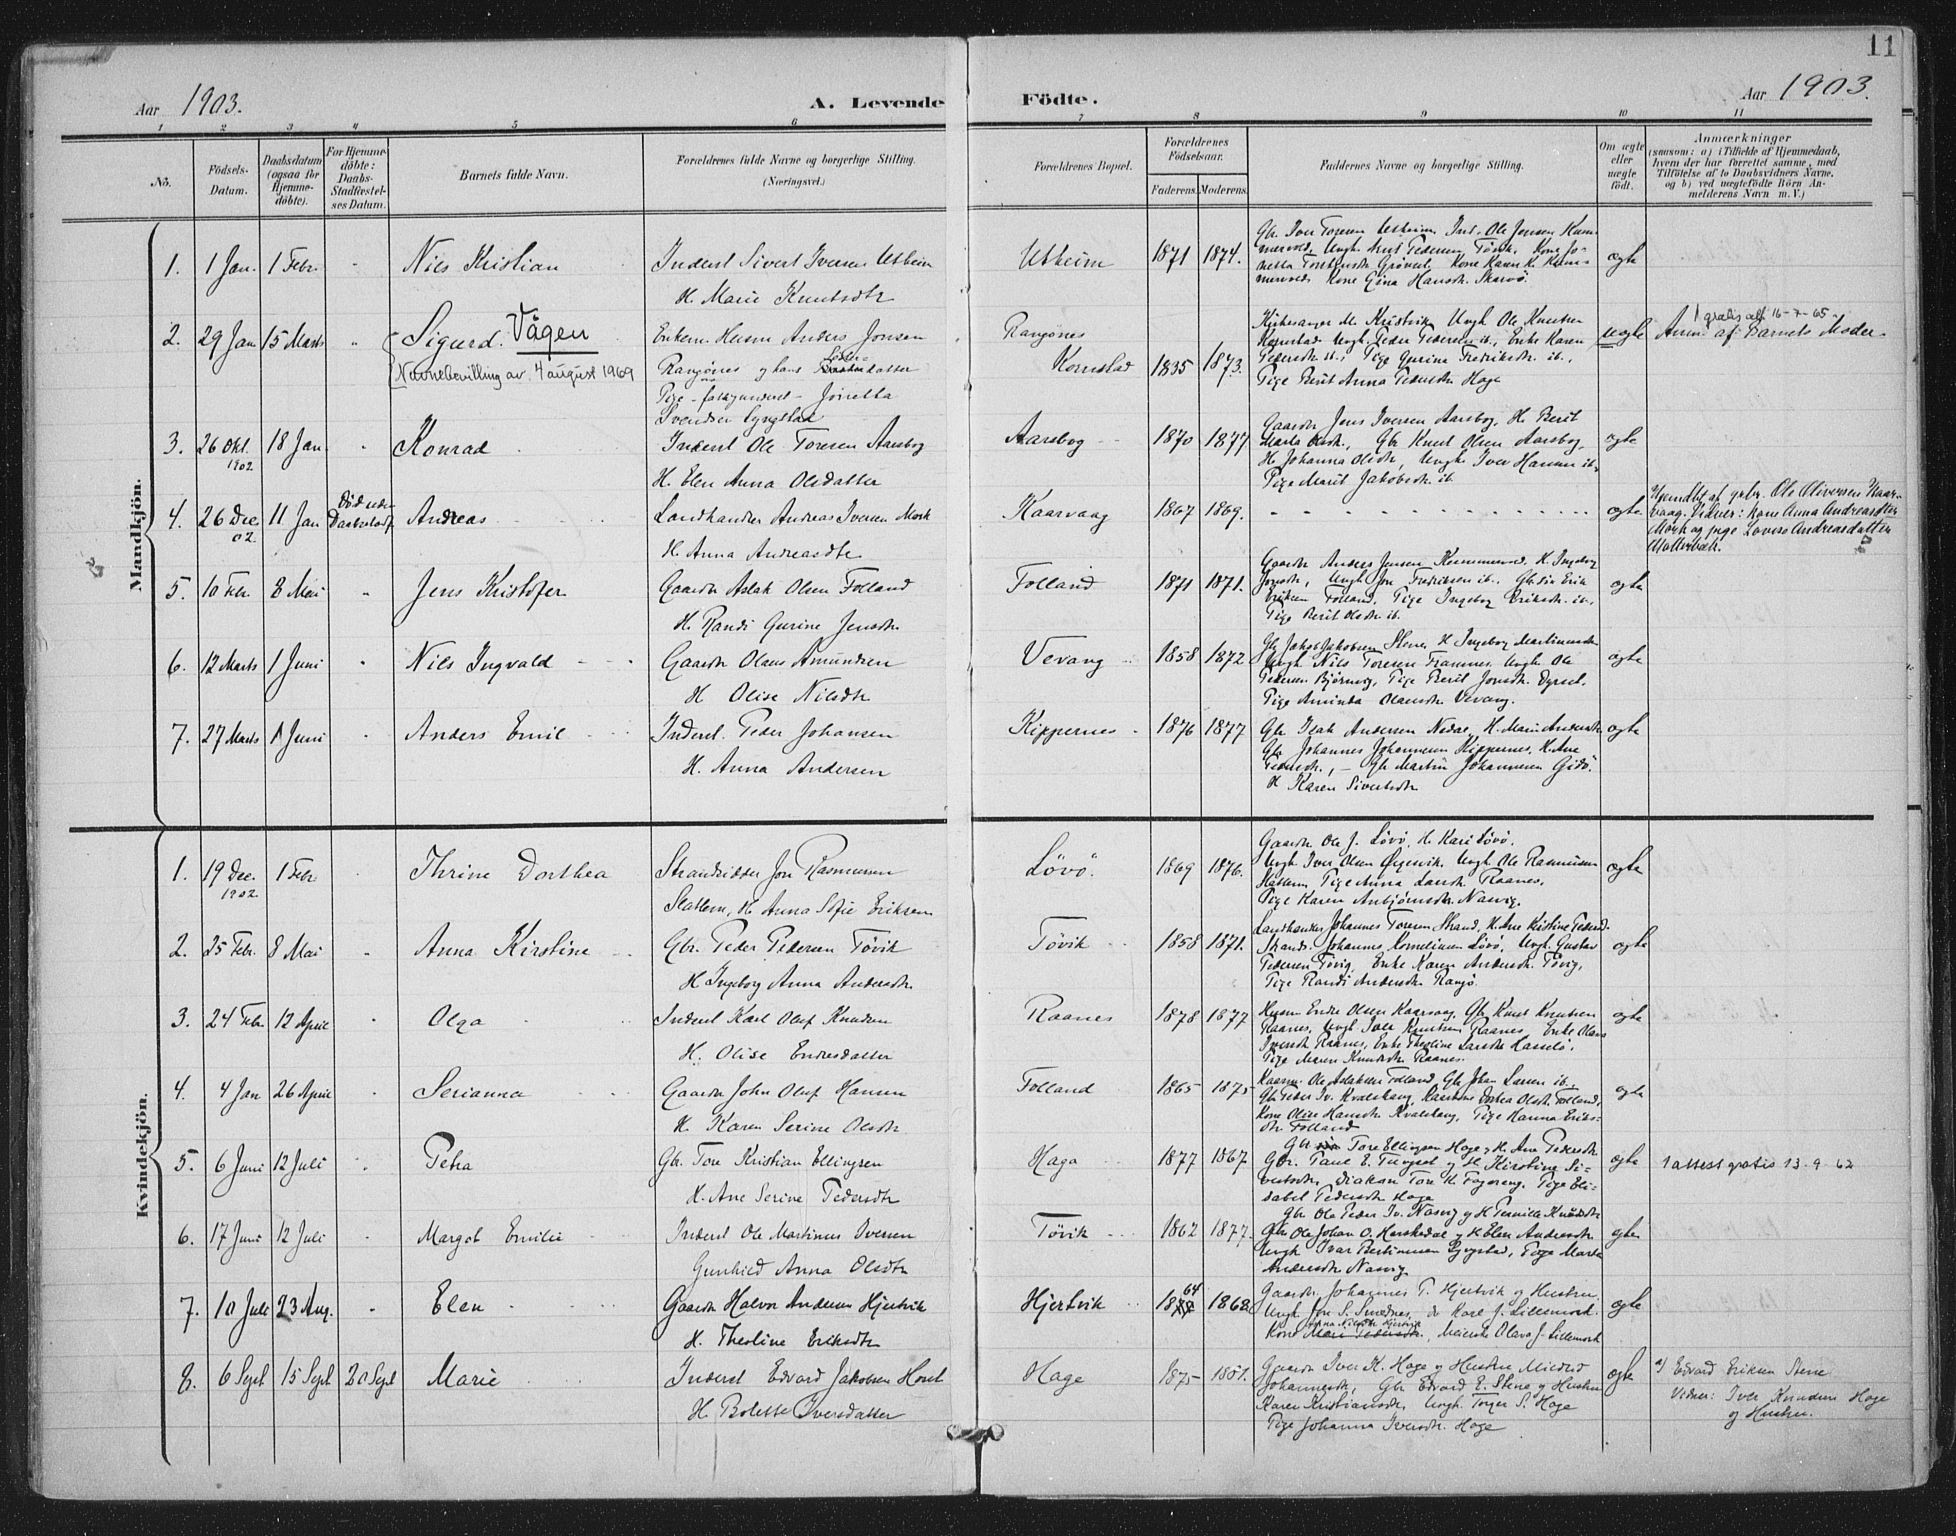 11
Aar 1903.
A. Levende Födte.
Aar 1903.
1 2 3 4 5 6 7 8 9 10 11
No.
Födsels-Datum.
Daabsdatum (ogsaa for Hjemme-döbte).
For Hjemme-döbte: Daabs-Stadfæstel-ses Datum.
Barnets fulde Navn.
Forældrenes fulde Navne og borgerlige Stilling.
(Næringsvei.)
Forældrenes Bopæl.
Forældrenes Födselsaar.
Faderens. Moderens.
Faddernes Navne og borgerlige Stilling.
Om ægte eller uægte födt.
Anmærkninger
(saasom: a) i Tilfælde af Hjemmedaab,
hvem der har forrettet samme, med
Tilföielse af to Daabsvidners Navne,
og b) ved uægtefödte Börn An-
melderens Navn m. V.)
Mandkjön.
1. 1 Jan. 1 Febr. Nils Kristian
Inderst Sivert Iversen Utheim
H. Marie Knutsdtr
Utheim 1871 1874.
Gbr. Iver Toresen Utheim, Inst. Ole Jonsen Ham-
ægte
2. 29 Jan 15 Marts Sigurd. Vågen
Navnebevilling av 4 august 1969
Enkem. Husm. Anders Jonsen
Rangönes
Pige
Svendser Lyngstad
Rangönes
Kornstad 1835 1873.
Kirkesanger M. Kristvik, Ungk. Ole Knutsen
Kornstad Ungk. Peder Pedersen ib., Enke Karen
Pedersdtr ib., Pige Gurine Fredriksdtr ib.,
Pige Berit Anna Pedersdtr Hage
uægte
1 gratis att 16-7-65.
Anm. af Barnets Moder
3. 26 Okt. 1902 18 Jan. Konrad
Inderst Ole Toresen Aarsbog
H. Elen Anna Olsdatter
Aarsbog 1870 1877
Gaardbr Jens Iversen Aarsbog, H. Berit
Marta Olsdtr., Gbr Knut Olsen Aarsbog,
H. Johanna Olsdtr, Ungk. Iver Hansen ib.,
Pige Marit Jakobsdtr ib.
ægte
4. 26 Dec 02. 11 Jan Död uden Daabsstadf. Andreas
Landhandler Andreas Iversen Mork
H. Anna Andreasdtr
Kaarvaag 1867 1869.
ægte
Hjemdöbt af gbr. Ole Oliversen Kaar-
vaag. Vidner: Kone Anna Andreasdtr
Mork og pige Lovise Andreasdatter
5. 10 Febr. 8 Mai Jens Kristofer
Gaardbr Aslak Olsen Folland
H. Randi Gurine Jensdtr
Folland 1871 1871.
Gaardbr Anders Jensen H. Ingeborg
Jonsdtr, Ungk. Jon Fredriksen ib.
Eriksen Folland, Pige Ingeborg Eriksdtr. ib.
Pige Berit Olsdtr ib.
ægte
6. 12 Marts 1 Juni Nils Ingvald
Gaardbr Olaus Amundsen
H. Olise Nilsdtr
Vevang 1858 1872
Gbr Jakob Jakobsen Stene, H. Ingeborg Martinusdtr
Ungk. Nils Toresen Ungk. Ole
Pedersen Björnvig, Pige Berit Jonsdtr.
Pige Aminda Olausdtr. Vevang.
ægte
7. 27 Marts 1 Juni Anders Emil
Inderst. Peder Johansen
H. Anna Andersen
Kippernes 1876 1877
Gbr. Isak Andersen H. Marie Andersdtr
Gbr Johannes Johannesen Kippernes, H. Ane
Pedersdtr, Gbr Martin Johannesen Gidö.
H Karen Sivertsdtr
ægte
Kvindekjön.
1. 19 Dec. 1902 1 Febr. Thrine Dorthea
Strandsidder Jon Rasmussen
Slatlem, H. Anna Sofie Eriksen
Lövö. 1869 1876.
Gaardbr Ole J. Lövö, H. Kari Lövö.
Ungk. Iver Olsen Ungk. Ole Rasmussen
Slatlem Pige Anna Larsdtr. Raanes,
Pige Karen Asbjörnsdtr. Nasvig.
ægte
2. 25 Febr. 8 Mai Anna Kirstine
Gbr. Peder Pedersen Tövik
H Ingeborg Anna Andersdtr
Tövik 1858 1871.
Landhandler Johannes Toresen Strand, H. Ane Kristine Pedersd.
Strand. Johannes Korneliusen Lövö, Ungk. Gustav
Pedersen Tövig, Enke Karen Andersdtr. Tövig,
Pige Randi Andersdtr
ægte
3. 24 Febr 12 April Olga
Inderst Karl Oluf Knudsen
H. Olise Endresdatter
Raanes 1878 1877
Husm Endre Olsen Kaarvaag, Gbr Knut Knutsen
Raanes, Ungk Iver Knutsen Raanes, Enke Olava
Iversdtr Raanes, Enke Theoline Larsdtr Hasselö,
Pige Maren Knutsdtr. Raanes.
ægte
4. 4 Jan 26 April Serianna
Gaardbr John Oluf Hansen
H. Karen Serine Olsdtr.
Folland 1865 1875
Ole Aslaksen Folland, Gbr Johan Larsen ib.
Gbr Peder Iv. Kvalshaug, Dorthea Olsdtr. Folland,
Kone Olise Hansdtr. Kvalshaug, Pige Hanna Eriks-
dtr. Folland
ægte
5. 6 Juni 12 Juli Petra
Gbr. Tore Kristian Ellingsen
H. Ane Serine Pedersdtr
Haga 1877 1867
Gbr Tore Ellingsen Hage og H. Ane Pedersdtr
Gbr. Paul E. og H. Kirstine Si-
vertsdtr, Diakon Tore K. Pige Eli-
sabet Pedersdtr Hage
ægte
1 attest gratis 13-9-62
6. 17 Juni 12 Juli Margot Emilie
Inderst Ole Martinus Iversen
Gunhild Anna Olsdtr
Tövik 1862 1877.
Gbr Ole Peder Iv. Nasvig og H Pernille Knudsdtr
Gbr. Ole Johan O. Henskedal og H Elen Andersdtr
Ungk Ivar Bertinusen Pige Marta
Andersdtr Nasvig
ægte
7. 10 Juli 23 Aug. Elen
Gaardbr Halvor Andersen Hjertvik
H. Theoline Eriksdtr
Hjertvik 1864 1868
Gaardbr. Johannes T. Hjertvik og Hustru,
Ungk. Jon S. Smednes, do Karl J. Lillemork
Kone Anna Nilsdtr Hjertvik, Meierske Olava J. Lillemork
ægte
8. 6 Sept 15 Sept 20 Sept Marie
Inderst Edvard Jakobsen
H Bolette Iversdatter
Hage 1875 1881.
Gaardbr Iver K. Hage og Hustru Mildrid
Johannesdtr, Gbr Edvard E. Stene og Hustru
Karen Kristiansdtr, Ungk. Torger S. Hage
Pige Johanna Iversdtr. Hage
ægte
a) Edvard Eriksen Stene
Vidner: Iver Knudsen Hage
og Hustru.